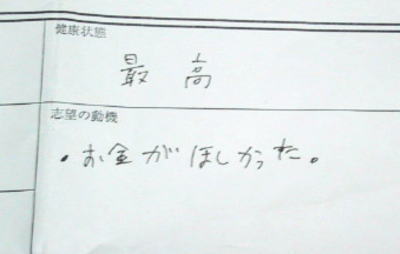 健康状態
最高
志望の動機
・お金がほしかった。